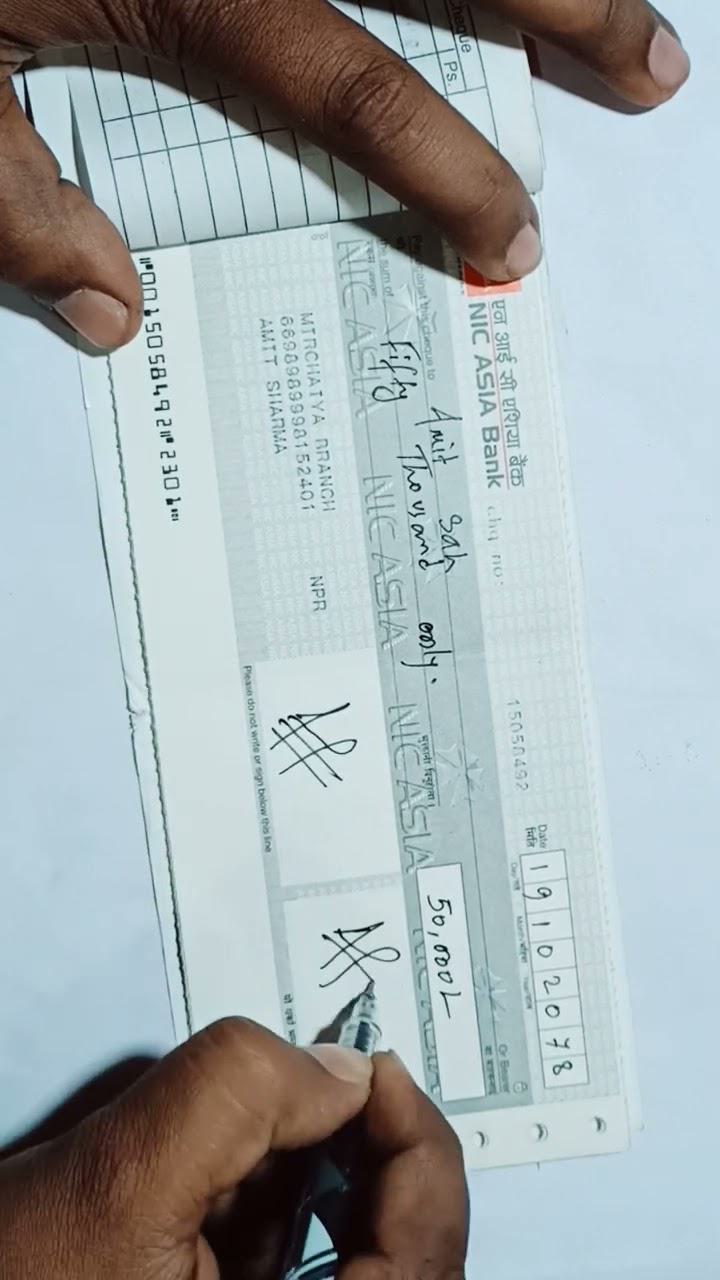 Cheque
Ps.
एन आई सी एशिया बैंक
NIC ASIA Bank
chq no:
15050492
Date
मिति
19102078
Or Bearer
against this cheque to
Amit Sah
the sum of
Fifty Thousand only.
50,000/-
NIC ASIA NIC ASIA NIC ASIA
MIRCHAIYA BRANCH
6698989998152401 NPR
AMIT SHARMA
Please do not write or sign below this line
⑈0015058492⑈2301⑆